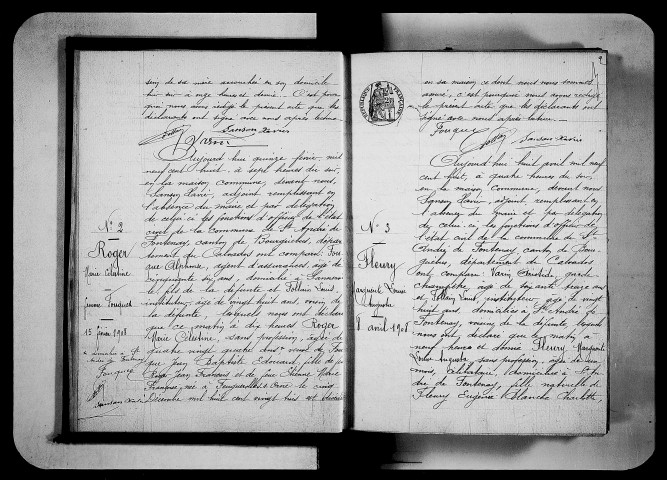 sein de sa mère accouchée en son domicile
hier soir à onze heures et demie. C'est pour
quoi nous avons rédigé le présent acte que les
déclarants ont signé avec nous après lecture.
Sanson Xavier
Varin
Aujourd'hui quinze février mil
neuf cent huit, à sept heures du soir,
en la maison commune, devant nous,
Sanson Xavier, adjoint remplissant en
l'absence du maire et par délégation
de celui ci les fonctions d'officier de l'état
civil de la commune de St André de
Fontenay, canton de Bourguébus, dépar
tement du Calvados ont comparu: Fou
que Alphonse, agent d'assurances, âgé de
cinquante six ans, domicilié à
fils de la défunte et Follain Louis,
instituteur, âgé de vingt huit ans, voisin de
la défunte, lesquels nous ont déclaré
que ce matin à dix heures Roger
Marie Célestine, sans profession, âgée de
quatre vingt quatre ans, veuve de Fou
que Jean Baptiste Edouard, fille de
Roger Jean François et de feue
Françoise, née à Orne le cinq
Décembre mil huit cent vingt huit est décédée
N° 2
Roger
Marie Célestine
Fouques
15 février 1908
domiciliée à St
André de Fontenay
Fouque
Sanson Xavier
2
en sa maison ce dont nous nous sommes
assuré, c'est pourquoi nous avons rédigé
le présent acte que les déclarants ont
signé avec nous après lecture.
Fouque
Sanson Xavier
REPUBLIQUE FRANÇAISE
Aujourd'hui huit avril mil neuf
cent huit, à quatre heures du soir,
en la maison commune, devant nous
Sanson Xavier, adjoint, remplissant en
l'absence du maire et par délégation
de celui ci, les fonctions d'officier de
l'état civil de la commune de St
André de Fontenay canton de Bour
guébus, département du Calvados
ont comparu: Varin Aristide, garde
champêtre, âgé de soixante treize ans
et Follain Louis, instituteur, âgé de vingt
huit ans, domiciliés à St André de
Fontenay, voisins de la défunte, lesquels
nous ont déclaré que ce matin à
neuf heures et demie Fleury Marguerite
Louise Augusta sans profession, âgée de
mois, célibataire, domiciliée à St An
dré de Fontenay, fille naturelle de
Fleury Eugénie Blanche Charlotte
N° 3
Fleury
Marguerite Louise
Augusta
8 avril 1908